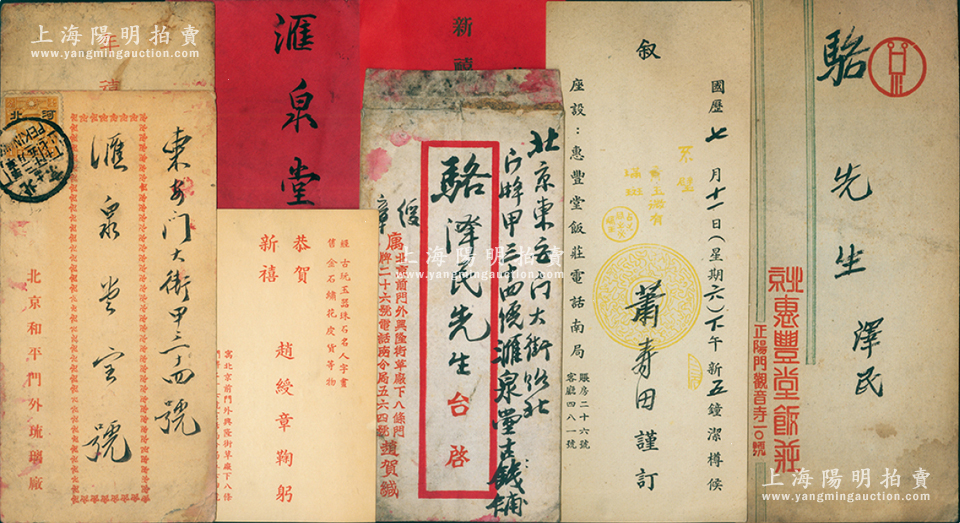 駱先生 澤民
北京惠豐堂飯莊
正陽門觀音寺一〇號
敘
國歷七月十一日（星期六）下午新五鐘潔樽候
蕭壽田謹訂
座設：惠豐堂飯莊電話南局
賬房二十六號
客廳四八一號
北京東安門大街路北
門牌甲三十四號滙泉堂古錢舖
駱澤民先生台啓
北京前門外興隆街草廠下八條門
牌二十六號電話南分局五六四號趙賀緘
新禧
滙泉堂
恭賀
新禧
趙綬章鞠躬
經售古玩玉器珠石名人字畫
金石繡花皮貨等物
寓北京前門外興隆街草廠下八條
東安門大街甲三十四號
滙泉堂寶號
北京和平門外琉璃廠
河北
PEKING
上海陽明拍賣
www.yangmingauction.com
上海陽明拍賣
www.yangmingauction.com
上海陽明拍賣
www.yangmingauction.com